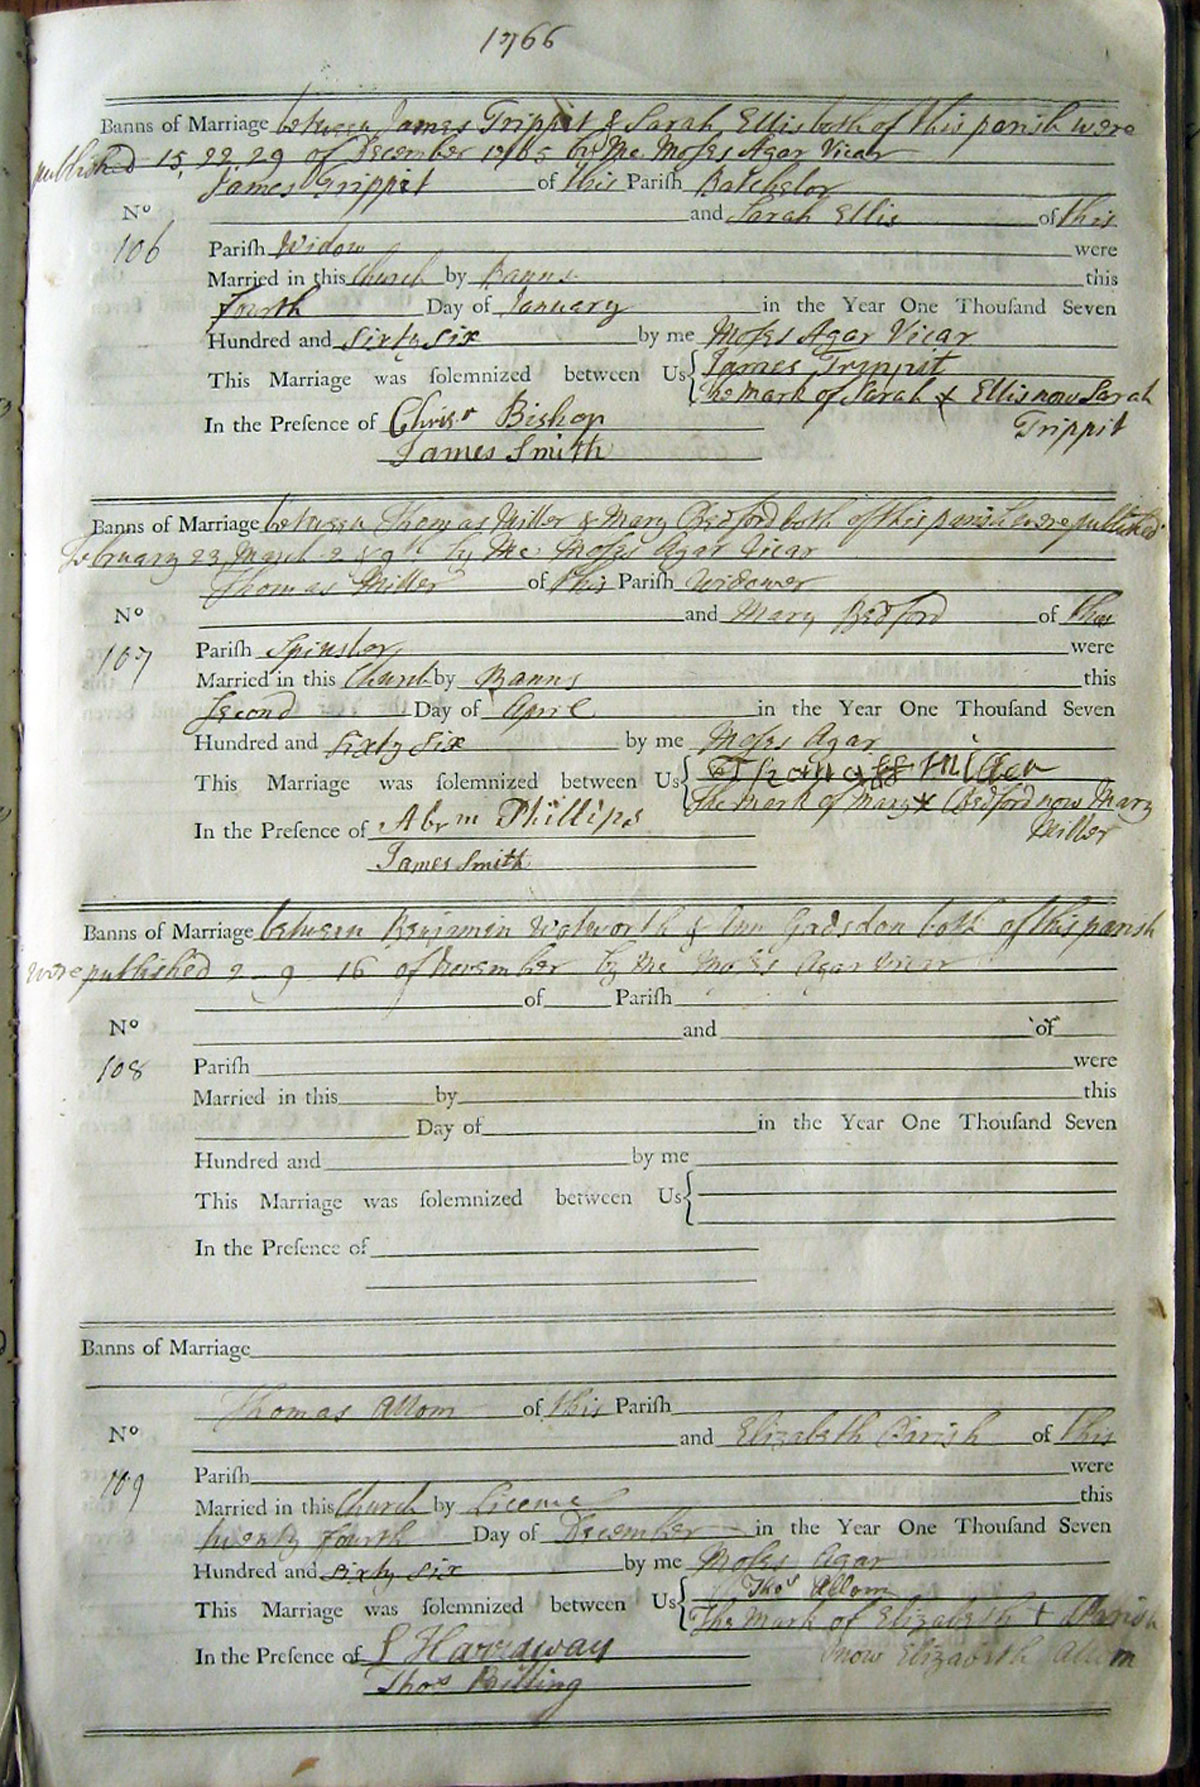 1766
Banns of Marriage between James Trippit & Sarah Ellis both of this parish were
published 15, 22, 29 of December 1765 by Me Moses Agar Vicar
James Trippit of this Pariſh Batchelor
No and Sarah Ellis of this
106 Pariſh Widow were
Married in this Church by Banns this
Fourth Day of January in the Year One Thouſand Seven
Hundred and Sixty six by me Moses Agar Vicar
This Marriage was ſolemnized between Us { James Trippit
The Mark of Sarah X Ellis now Sarah
Trippit
In the Preſence of Chrisr Bishop
James Smith
Banns of Marriage between Thomas Miller & Mary Bedford both of this parish were published
February 23 March 2 & 9 by Me Moses Agar Vicar
Thomas Miller of this Pariſh Widower
No and Mary Bedford of this
107 Pariſh Spinster were
Married in this Church by Banns this
Second Day of April in the Year One Thouſand Seven
Hundred and Sixty Six by me Moses Agar
This Marriage was ſolemnized between Us { Thomas Miller
The Mark of Mary X Bedford now Mary
Miller
In the Preſence of Abrm Phillips
James Smith
Banns of Marriage between Benjamin Walworth & Ann Gadsdon both of this parish
were published 2 - 9 16 of November by Me Moses Agar Vicar
of Pariſh
No and of
108 Pariſh were
Married in this by this
Day of in the Year One Thouſand Seven
Hundred and by me
This Marriage was ſolemnized between Us {
In the Preſence of
Banns of Marriage
Thomas Allom of this Pariſh
No and Elizabeth Parish of this
109 Pariſh were
Married in this Church by Licence this
twenty Fourth Day of December in the Year One Thouſand Seven
Hundred and sixty six by me Moses Agar
This Marriage was ſolemnized between Us { Thos Allom
The Mark of Elizabeth + Parish
now Elizabeth Allom
In the Preſence of Harraway
Thos Billing